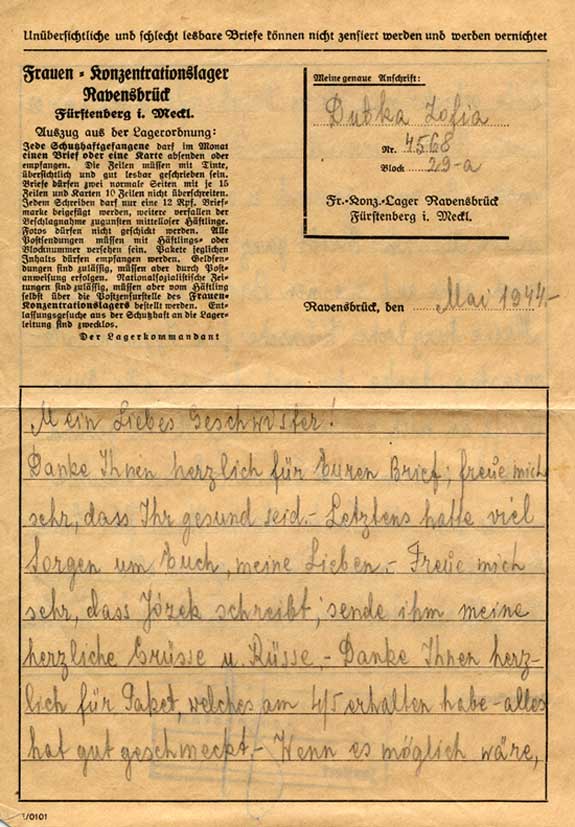 Unübersichtliche und schlecht lesbare Briefe können nicht zensiert werden und werden vernichtet
Frauen-Konzentrationslager
Ravensbrück
Fürstenberg i. Meckl.
Auszug aus der Lagerordnung:
Jede Schutzhaftgefangene darf im Monat
einen Brief oder eine Karte absenden oder
empfangen. Die Zeilen müssen mit Tinte,
übersichtlich und gut lesbar geschrieben sein.
Briefe dürfen zwei normale Seiten mit je 15
Zeilen und Karten 10 Zeilen nicht überschreiten.
Jedem Schreiben darf nur eine 12 Rpf. Brief-
marke beigefügt werden, weitere verfallen der
Beschlagnahme zugunsten mittelloser Häftlinge.
Fotos dürfen nicht geschickt werden. Alle
Postsendungen müssen mit Häftlings- oder
Blocknummer versehen sein. Pakete jeglichen
Inhalts dürfen empfangen werden. Geldsen-
dungen sind zulässig, müssen aber durch Post-
anweisung erfolgen. Nationalsozialistische Zei-
tungen sind zulässig, müssen aber vom Häftling
selbst über die Postzensurstelle des Frauen-
Konzentrationslagers bestellt werden. Ent-
lassungsgesuche aus der Schutzhaft an die Lager-
leitung sind zwecklos.
Der Lagerkommandant
Meine genaue Anschrift:
Dutka Zofia
Nr. 4568
Block 29-a
Fr.-Konz.-Lager Ravensbrück
Fürstenberg i. Meckl.
Ravensbrück, den Mai 1944.-
Mein Liebes Geschwister!
Danke Ihnen herzlich für Euren Brief; freue mich
sehr, dass Ihr gesund seid.- Letztens hatte viel
Sorgen um Euch, meine Lieben.- Freue mich
sehr, dass Józek schreibt, sende ihm meine
herzliche Grüsse u. Küsse.- Danke Ihnen herz-
lich für Paket, welches am 4/5 erhalten habe - alles
hat gut geschmeckt.- Wenn es möglich wäre,
I/0101